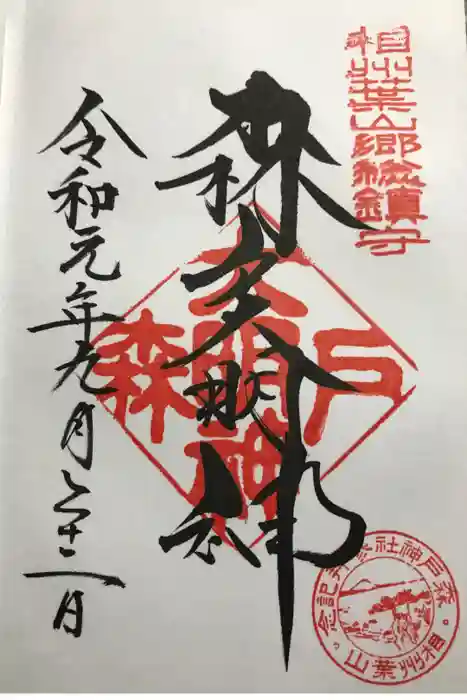 相州葉山郷総鎮守
森戸大明神
森戸大明神
令和元年九月二十二日
森戸神社参拝記念
相州葉山